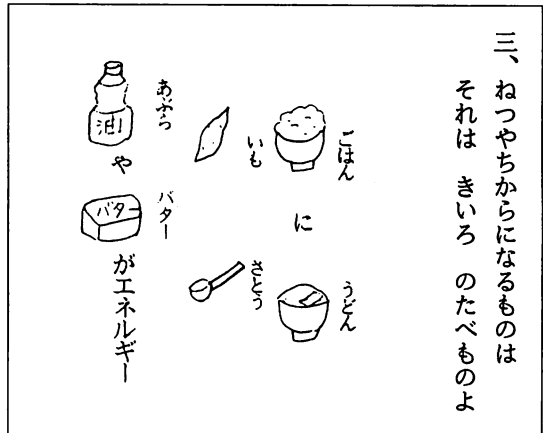 三、ねつやちからになるものは
それは きいろ のたべものよ
ごはん に うどん
いも さとう
あぶら や バター がエネルギー
油
バター